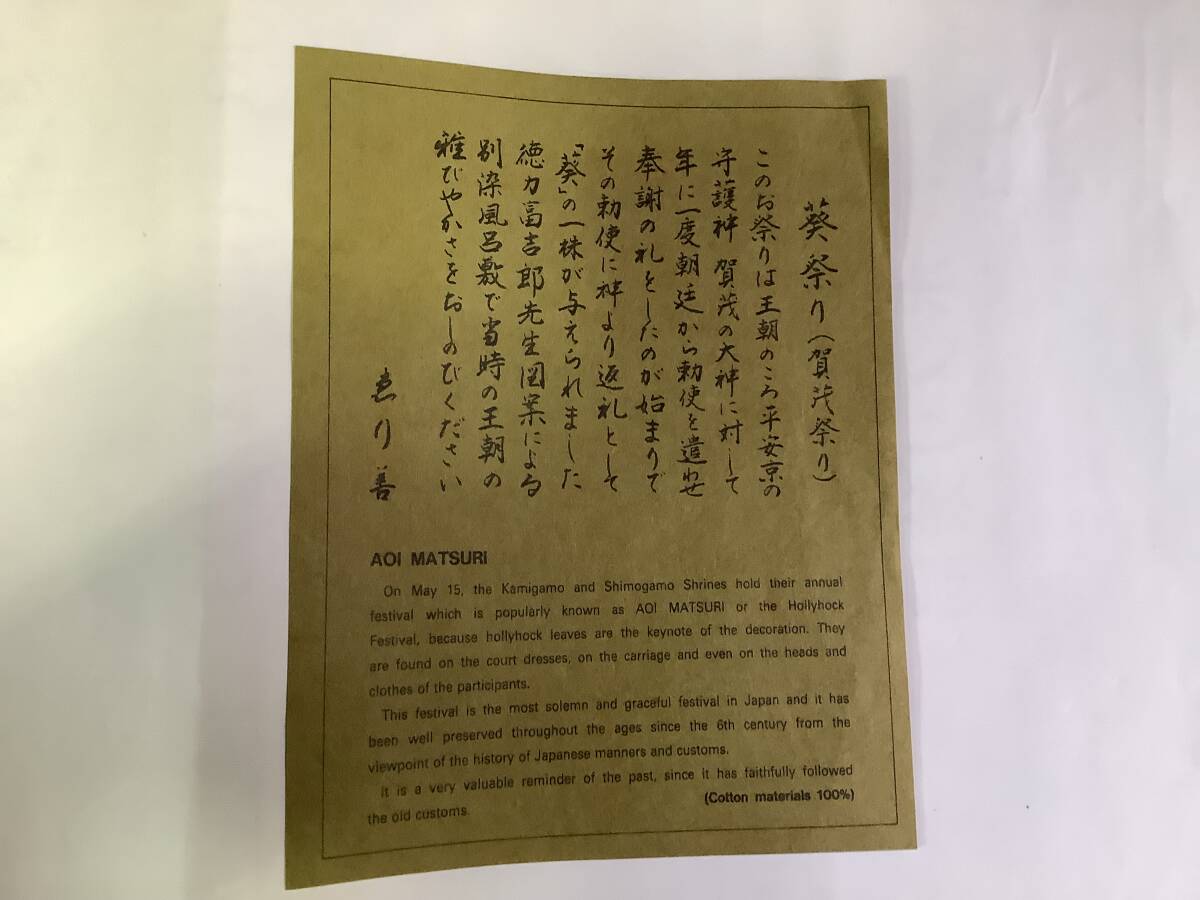 葵祭り(賀茂祭り)
このお祭りは王朝のころ平安京の
守護神 賀茂の大神に対して
年に一度朝廷から勅使を遣わせ
奉謝の礼をしたのが始まりで
その勅使に神より返礼として
「葵」の一株が与えられました
徳力富吉郎先生図案による
別染風呂敷で当時の王朝の
雅びやかさをおしのびください
ゑり善
AOI MATSURI
On May 15, the Kamigamo and Shimogamo Shrines hold their annual
festival which is popularly known as AOI MATSURI or the Hollyhock
Festival, because hollyhock leaves are the keynote of the decoration. They
are found on the court dresses, on the carriage and even on the heads and
clothes of the participants.
This festival is the most solemn and graceful festival in Japan and it has
been well preserved throughout the ages since the 6th century from the
viewpoint of the history of Japanese manners and customs.
It is a very valuable reminder of the past, since it has faithfully followed
the old customs.
(Cotton materials 100%)